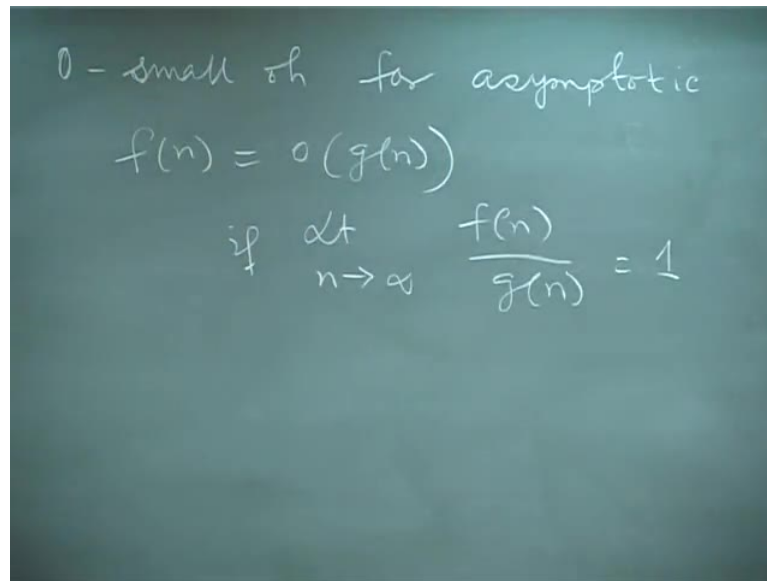 0 - small oh for asymptotic
f(n) = o(g(n))
if Lt n→∞ f(n)/g(n) = 1